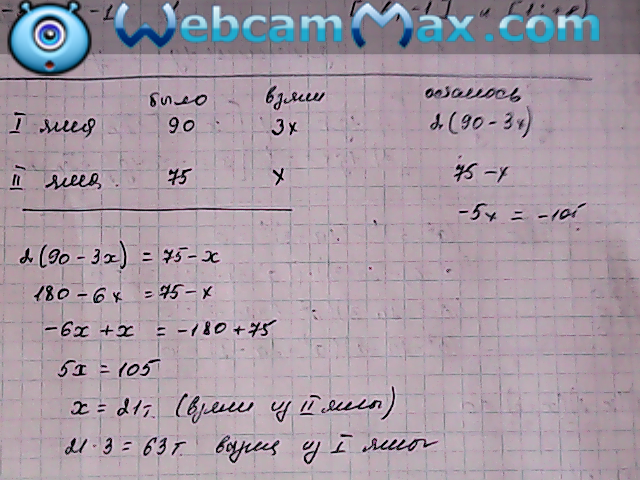 WebcamMax.com
было взяли осталось
I яма 90 3x 2(90-3x)
II яма 75 x 75-x
-5x = -105
2(90-3x) = 75-x
180-6x = 75-x
-6x+x = -180+75
5x = 105
x = 21т. (взяли из II ямы)
21·3 = 63т. из I ямы